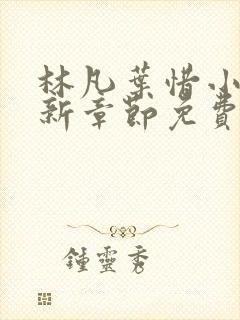 林凡葉惜小
新章節免費
鍾靈秀